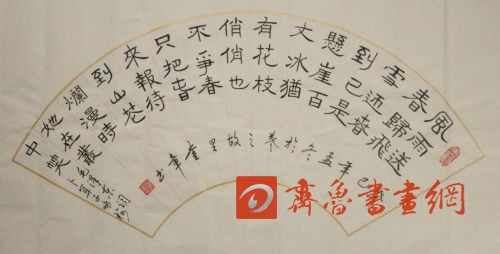 風雨送
春歸飛
雪迎春
到已是
懸崖百
丈冰猶
有花枝
俏俏也
不爭春
只把春
來報待
到山花
爛漫時
她在叢
中笑
毛澤東詞
卜算子詠梅
年孟冬於之故里
齊魯書畫網